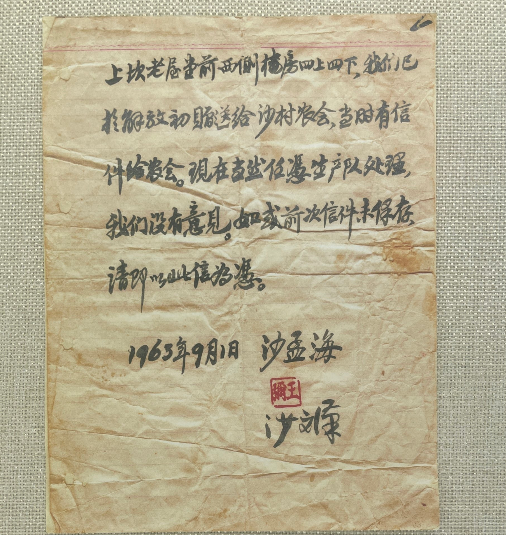 上坎老屋堂前西側楼房四上四下,我们已
於解放初賠送给沙村农会,当时有信
件给农会。现在当然任憑生产队处理,
我们没有意见。如或前次信件未保存,
请即以此信为憑。
1963年9月1日 沙孟海
沙文